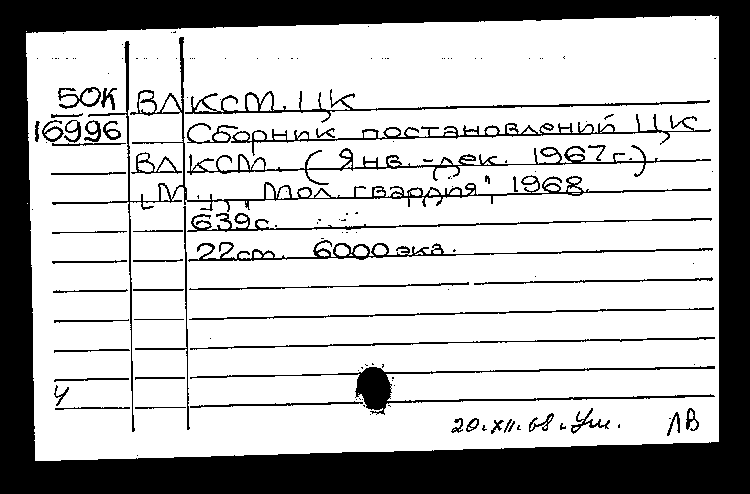 50К ВЛКСМ. ЦК
16996 Сборник постановлений ЦК
ВЛКСМ. (Янв.-дек. 1967г.).
[М.], „Мол. гвардия", 1968.
639с.
22см. 6000экз.
Ч
20.XII.68. ЛВ